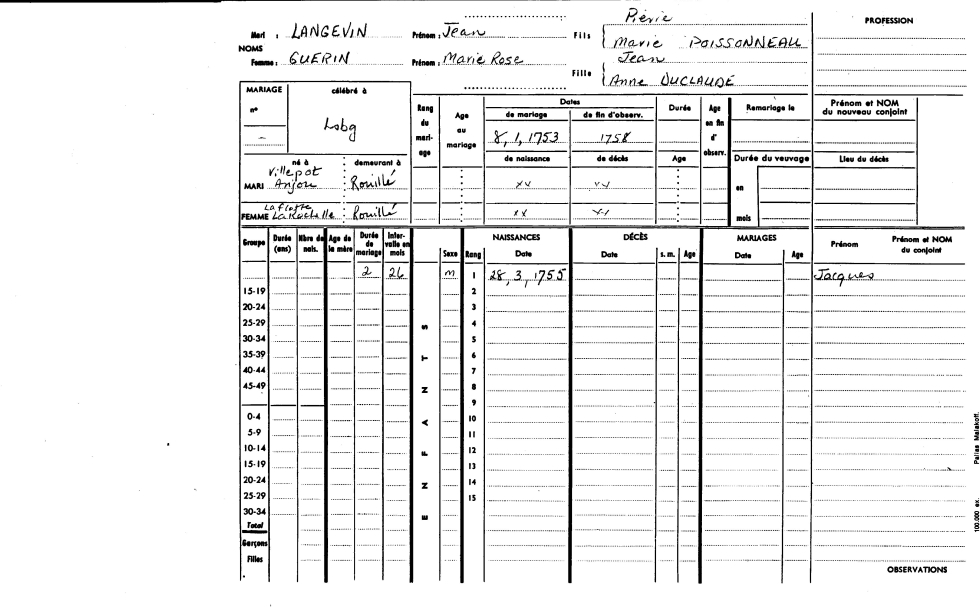 Pierre
PROFESSION
Mari : LANGEVIN Prénom : Jean Fils Marie POISSONNEAU
NOMS
Femme : GUERIN Prénom : Marie Rose Jean
Fille Anne DUCLAUDE
MARIAGE célébré à
n° Lobg
Rang du mariage
Age au mariage
Dates
de mariage de fin d'observ.
8, 1, 1753 1758
de naissance de décès
Durée
Age
Age en fin d'observ.
Remariage le
Durée du veuvage
Prénom et NOM du nouveau conjoint
Lieu du décès
né à demeurant à
Villepot
MARI Anjou Rouillé xv
en
Laflotte
FEMME La Rochelle Rouillé xx
mois
Groupe Durée (ans) Nbre de nais. Age de la mère Durée de mariage Intervalle en mois Sexe Rang NAISSANCES Date DÉCÈS Date s. m. Age MARIAGES Date Age Prénom Prénom et NOM du conjoint
2 26 m 1 28, 3, 1755 Jacques
15-19 2
20-24 3
25-29 S 4
30-34 5
35-39 T 6
40-44 7
45-49 N 8
9
0-4 A 10
5-9 11
10-14 F 12
15-19 13
20-24 N 14
25-29 15
30-34 E
Total
Garçons
Filles
OBSERVATIONS
100.000 ex. Pallas Malakoff.